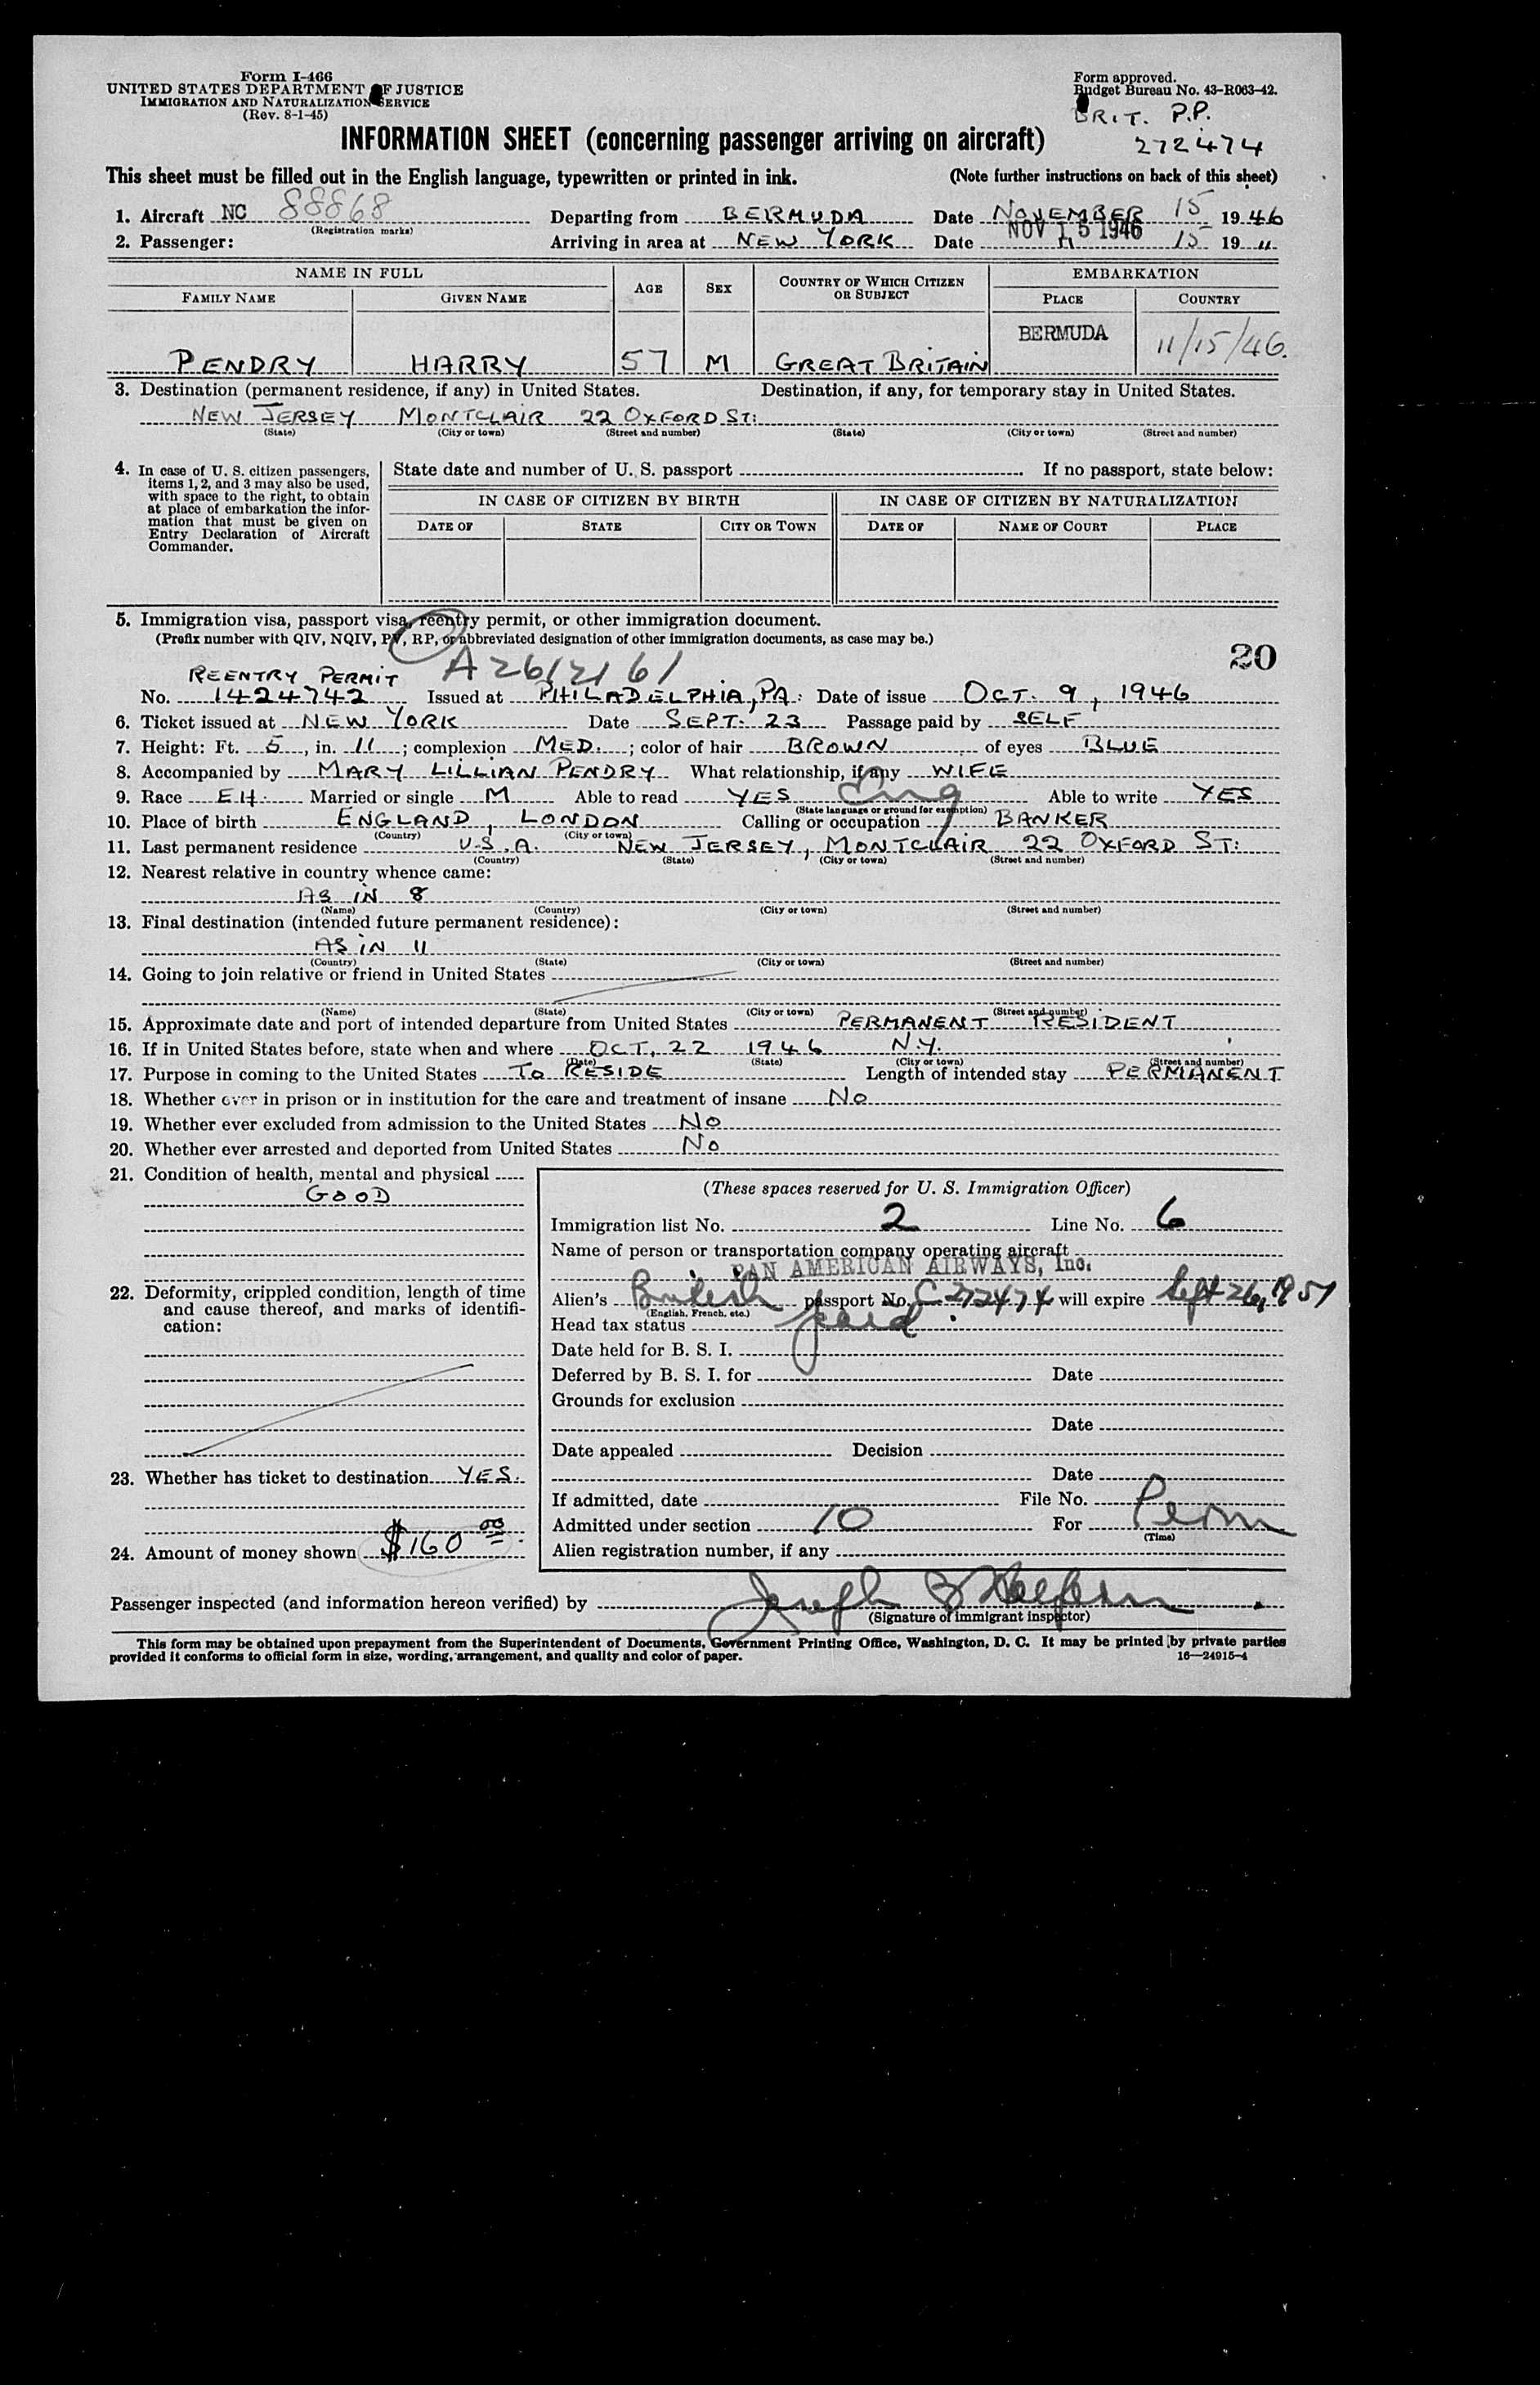 Form I-466
UNITED STATES DEPARTMENT OF JUSTICE
IMMIGRATION AND NATURALIZATION SERVICE
(Rev. 8-1-45)
Form approved.
Budget Bureau No. 43-R063-42.
BRIT. P.P.
272474
INFORMATION SHEET (concerning passenger arriving on aircraft)
This sheet must be filled out in the English language, typewritten or printed in ink. (Note further instructions on back of this sheet)
1. Aircraft NC 88868 Departing from BERMUDA Date NOVEMBER 15 1946
(Registration marks)
NOV 15 1946
2. Passenger: Arriving in area at NEW YORK Date " 15 19 "
NAME IN FULL AGE SEX COUNTRY OF WHICH CITIZEN OR SUBJECT EMBARKATION
FAMILY NAME GIVEN NAME PLACE COUNTRY
BERMUDA 11/15/46.
PENDRY HARRY 57 M GREAT BRITAIN
3. Destination (permanent residence, if any) in United States. Destination, if any, for temporary stay in United States.
NEW JERSEY MONTCLAIR 22 OXFORD ST:
(State) (City or town) (Street and number) (State) (City or town) (Street and number)
4. In case of U. S. citizen passengers, items 1, 2, and 3 may also be used, with space to the right, to obtain at place of embarkation the information that must be given on Entry Declaration of Aircraft Commander.
State date and number of U. S. passport If no passport, state below:
IN CASE OF CITIZEN BY BIRTH IN CASE OF CITIZEN BY NATURALIZATION
DATE OF STATE CITY OR TOWN DATE OF NAME OF COURT PLACE
5. Immigration visa, passport visa, reentry permit, or other immigration document.
(Prefix number with QIV, NQIV, PV, RP, or abbreviated designation of other immigration documents, as case may be.)
20
REENTRY PERMIT A2612161
No. 1424742 Issued at PHILADELPHIA, PA: Date of issue OCT. 9, 1946
6. Ticket issued at NEW YORK Date SEPT. 23 Passage paid by SELF
7. Height: Ft. 5, in. 11; complexion MED.; color of hair BROWN of eyes BLUE
8. Accompanied by MARY LILLIAN PENDRY What relationship, if any WIFE
9. Race EH. Married or single M Able to read YES Eng Able to write YES
(State language or ground for exemption)
10. Place of birth ENGLAND, LONDON Calling or occupation BANKER
(Country) (City or town)
11. Last permanent residence U.S.A. NEW JERSEY, MONTCLAIR 22 OXFORD ST:
(Country) (State) (City or town) (Street and number)
12. Nearest relative in country whence came:
AS IN 8
(Name) (Country) (City or town) (Street and number)
13. Final destination (intended future permanent residence):
AS IN 11
(Country) (State) (City or town) (Street and number)
14. Going to join relative or friend in United States
(Name) (State) (City or town) (Street and number)
15. Approximate date and port of intended departure from United States PERMANENT RESIDENT
16. If in United States before, state when and where OCT. 22 1946 N.Y.
(Date) (State) (City or town) (Street and number)
17. Purpose in coming to the United States TO RESIDE Length of intended stay PERMANENT
18. Whether ever in prison or in institution for the care and treatment of insane NO
19. Whether ever excluded from admission to the United States NO
20. Whether ever arrested and deported from United States NO
21. Condition of health, mental and physical
GOOD
22. Deformity, crippled condition, length of time and cause thereof, and marks of identification:
23. Whether has ticket to destination YES.
24. Amount of money shown $160 00
(These spaces reserved for U. S. Immigration Officer)
Immigration list No. 2 Line No. 6
Name of person or transportation company operating aircraft
PAN AMERICAN AIRWAYS, Inc.
Alien's British passport No. C 272474 will expire Sept 26, 1951
(English, French, etc.)
Head tax status paid
Date held for B. S. I.
Deferred by B. S. I. for Date
Grounds for exclusion
Date
Date appealed Decision
Date
If admitted, date File No.
Admitted under section 10 For Perm
(Time)
Alien registration number, if any
Passenger inspected (and information hereon verified) by Joseph B
(Signature of immigrant inspector)
This form may be obtained upon prepayment from the Superintendent of Documents, Government Printing Office, Washington, D. C. It may be printed by private parties
provided it conforms to official form in size, wording, arrangement, and quality and color of paper. 16—24915-4